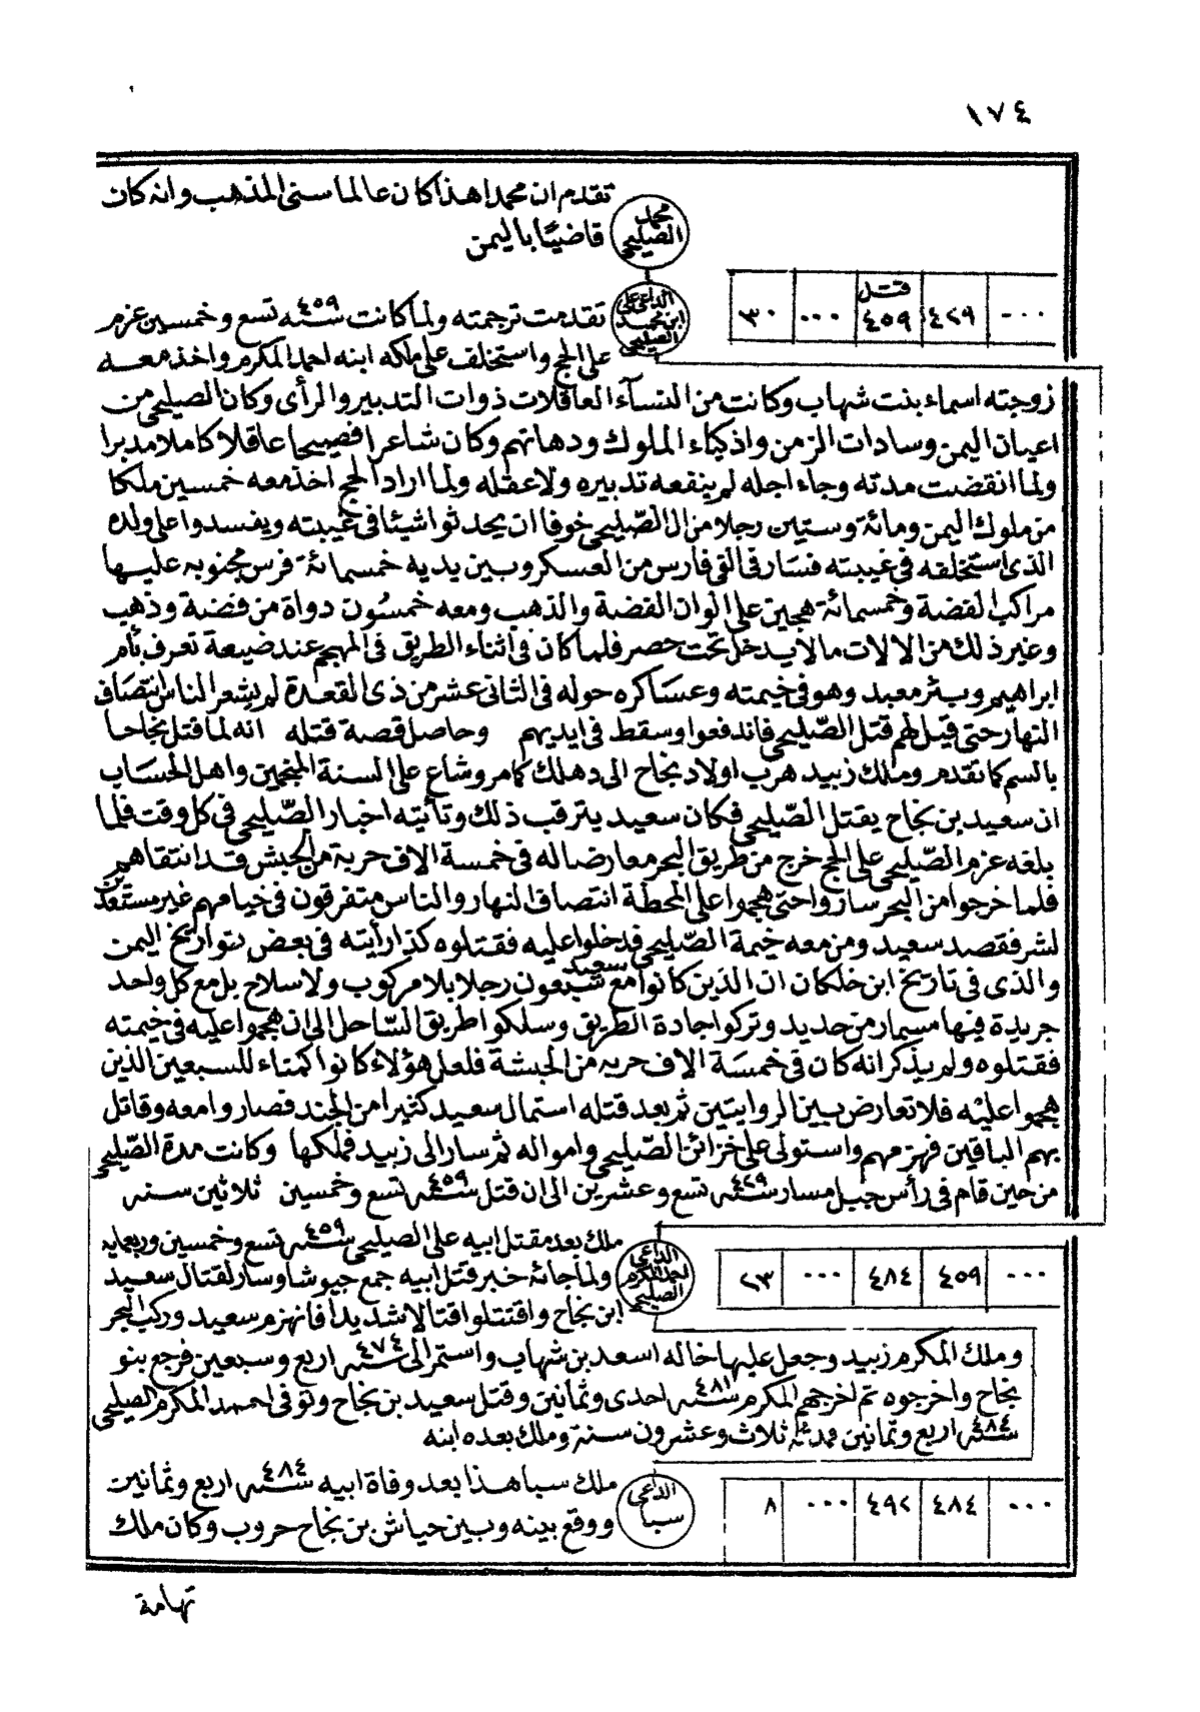 ١٧٤
تقدم ان محمدا هذا كان عالما سنى المذهب وانه كان
محمد الصليحى
قاضيًا باليمن
٠٠٠ ٤٢٩ قتل ٤٥٩ ٠٠٠ ٣٠
الداعى على ابن محمد الصليحى
تقدمت ترجمته ولما كانت سنة ٤٥٩ تسع وخمسين عزم
على الحج واستخلف على ملكه ابنه احمد المكرم واخذ معه
زوجته اسماء بنت شهاب وكانت من النسآء العاقلات ذوات التدبير والرأى وكان الصليحى من
اعيان اليمن وسادات الزمن واذكياء الملوك ودهاتهم وكان شاعرا فصيحا عاقلا كاملا مدبرا
ولما انقضت مدته وجاء اجله لم ينفعه تدبيره ولا عقله ولما اراد الحج اخذ معه خمسين ملكا
من ملوك اليمن ومائة وستين رجلا من ال الصّليحى خوفا ان يحدثوا شيئا فى غيبته ويفسدوا على ولده
الذى استخلفه فى غيبته فسار فى الفى فارس من العسكر وبين يديه خمسمائة فرس مجنوبه عليها
مراكب الفضة وخمسمائة هجين على الوان الفضة والذهب ومعه خمسون دواة من فضة وذهب
وغير ذلك من الالات مالا يدخل تحت حصر فلما كان فى أثناء الطريق فى المهجم عند ضيعة تعرف بأم
ابراهيم وبئر معبد وهو فى خيمته وعساكره حوله فى الثانى عشر من ذى القعدة لم يشعر الناس انتصاف
النهار حتى قيل لهم قتل الصّليحى فاندفعوا وسقط فى ايديهم وحاصل قصة قتله انه لما قتل نجاحا
بالسم كما تقدم وملك زبيد هرب اولاد نجاح الى دهلك كما مر وشاع على السنة المنجمين واهل الحساب
ان سعيد بن نجاح يقتل الصّليحى فكان سعيد يترقب ذلك وتأتيه اخبار الصّليحى فى كل وقت فلما
بلغه عزم الصّليحى على الحج خرج من طريق البحر معارضا له فى خمسة الاف حربة من الحبش قد انتقاهم
فلما خرجوا من البحر ساروا حتى هجموا على المحطة انتصاف النهار والناس متفرقون فى خيامهم غير مستعدّين
لشر فقصد سعيد ومن معه خيمة الصّليحى فدخلوا عليه فقتلوه كذا رأيته فى بعض تواريخ اليمن
والذى فى تاريخ ابن خلكان ان الذين كانوا مع سعيد سبعون رجلا بلا مركوب ولا سلاح بل مع كل واحد
جريدة فيها مسمار من حديد وتركوا جادة الطريق وسلكوا طريق السّاحل الى ان هجموا عليه فى خيمته
فقتلوه ولم يذكر انه كان فى خمسة الاف حربه من الحبشة فلعل هؤلاء كانوا كمناء للسبعين الذين
هجموا عليه فلا تعارض بين الروايتين ثم بعد قتله استمال سعيد كثيرا من الجند فصاروا معه وقاتل
بهم الباقين فهزمهم واستولى على خزائن الصّليحى وامواله ثم سار الى زبيد فملكها وكانت مدة الصّليحى
من حين قام فى رأس جبل مسار سنة ٤٢٩ تسع وعشرين الى ان قتل سنة ٤٥٩ تسع وخمسين ثلاثين سنه
٠٠٠ ٤٥٩ ٤٨٤ ٠٠٠ ٢٣
الداعى احمد المكرم الصليحى
ملك بعد مقتل ابيه على الصليحى سنة ٤٥٩ تسع وخمسين وربعمايه
ولما جائه خبر قتل ابيه جمع جيوشا وسار لقتال سعيد
ابن نجاح واقتتلوا قتالا شديدا فانهزم سعيد وركب البحر
وملك المكرم زبيد وجعل عليها خاله اسعد بن شهاب واستمر الى سنة ٤٧٤ اربع وسبعين فرجع بنو
نجاح واخرجوه ثم اخرجهم المكرم سنة ٤٨١ احدى وثمانين وقتل سعيد بن نجاح وتوفى احمد المكرم الصليحى
سنة ٤٨٤ اربع وثمانين فمدته ثلاث وعشرون سنة وملك بعده ابنه
٠٠٠ ٤٨٤ ٤٩٢ ٠٠٠ ٨
الداعى سبا
ملك سبا هذا بعد وفاة ابيه سنة ٤٨٤ اربع وثمانين
ووقع بينه وبين جياش بن نجاح حروب وكان ملك
تهامة